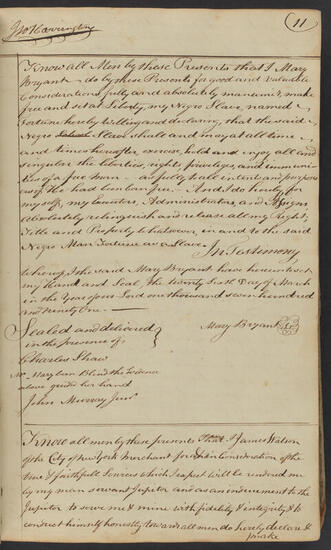 11
Jno Harrington
Know all Men by these Presents that I Mary
Bryant do by these Presents for good and valuable
Considerations fully and absolutely manumit, make
free and set at Liberty, my Negro Slave, named
Fortune hereby Willing and declaring, that the said
Negro Slave shall and may at all time
and times hereafter exercise, hold and enjoy all and
singular the liberties, rights, privileges, and immuni-
ties of a free man as fully to all intents and purposes
as if he had been born free. And I do hereby for
myself, my Executors, Administrators, and Assigns
absolutely relinquish and release all my Right,
Title and Property whatever, in and to the said
Negro Man Fortune as a Slave. In Testimony
Whereof, I the said Mary Bryant have hereunto set
my hand and Seal, the twenty Sixth Day of March
in the Year of our Lord one thousand seven hundred
and Ninety One
Sealed and delivered
in the presence of
Mary Bryant L.S
Charles Shaw
above guided her hand
John Murray Junr
Know all men by these presents that I James Watson
of the City of New York Merchant for & in Consideration of the
true & faithfull Services which I expect will be rendered me
by my man servant Jupiter and as an inducement to the
Jupiter to serve me & mine with fidelity & integrity & to
conduct himself honestly towards all men do hereby declare &
make